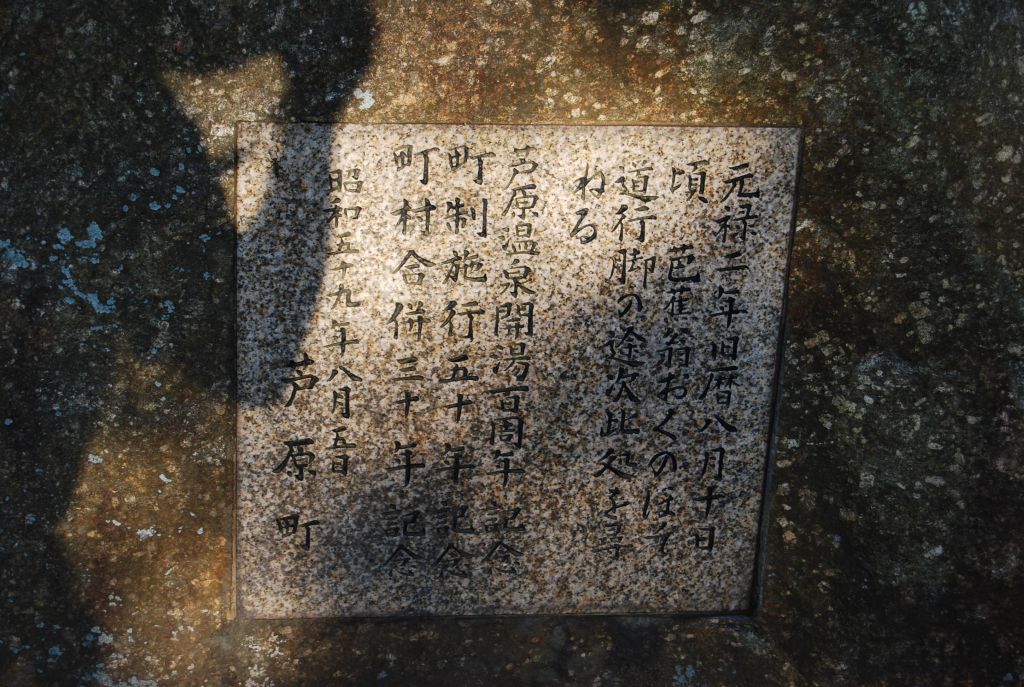 元禄二年旧暦八月十日
頃　芭蕉翁おくのほそ
道行脚の途次此処を尋
ねる
芦原温泉開湯百周年 記念
町制施行五十年 記念
町村合併三十年 記念
昭和五十九年八月五日
芦原町